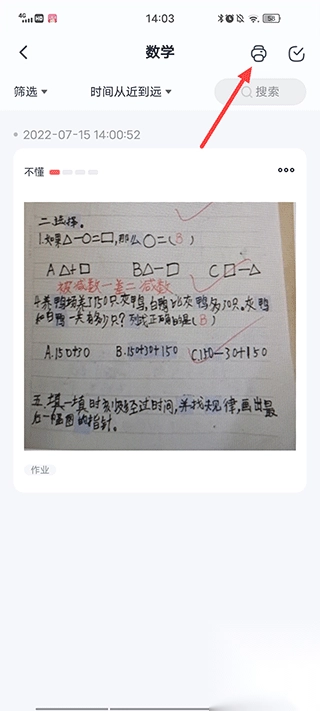 4G HD 14:03 58
数学
筛选 时间从近到远 搜索
2022-07-15 14:00:52
不懂
二、选择。
1.如果△-○=□,那么○=(B)
A △+□ B△-□ C □-△
被减数-差=减数
4.养鸭场养了150只灰鸭,白鸭比灰鸭多30只。灰鸭
和白鸭一共有多少只?列式正确的是(B)
A.150+30 B.150+30+150 C.150-30+150
五、填一填时刻经过时间,并找规律,画出最
后一幅图的指针。
作业